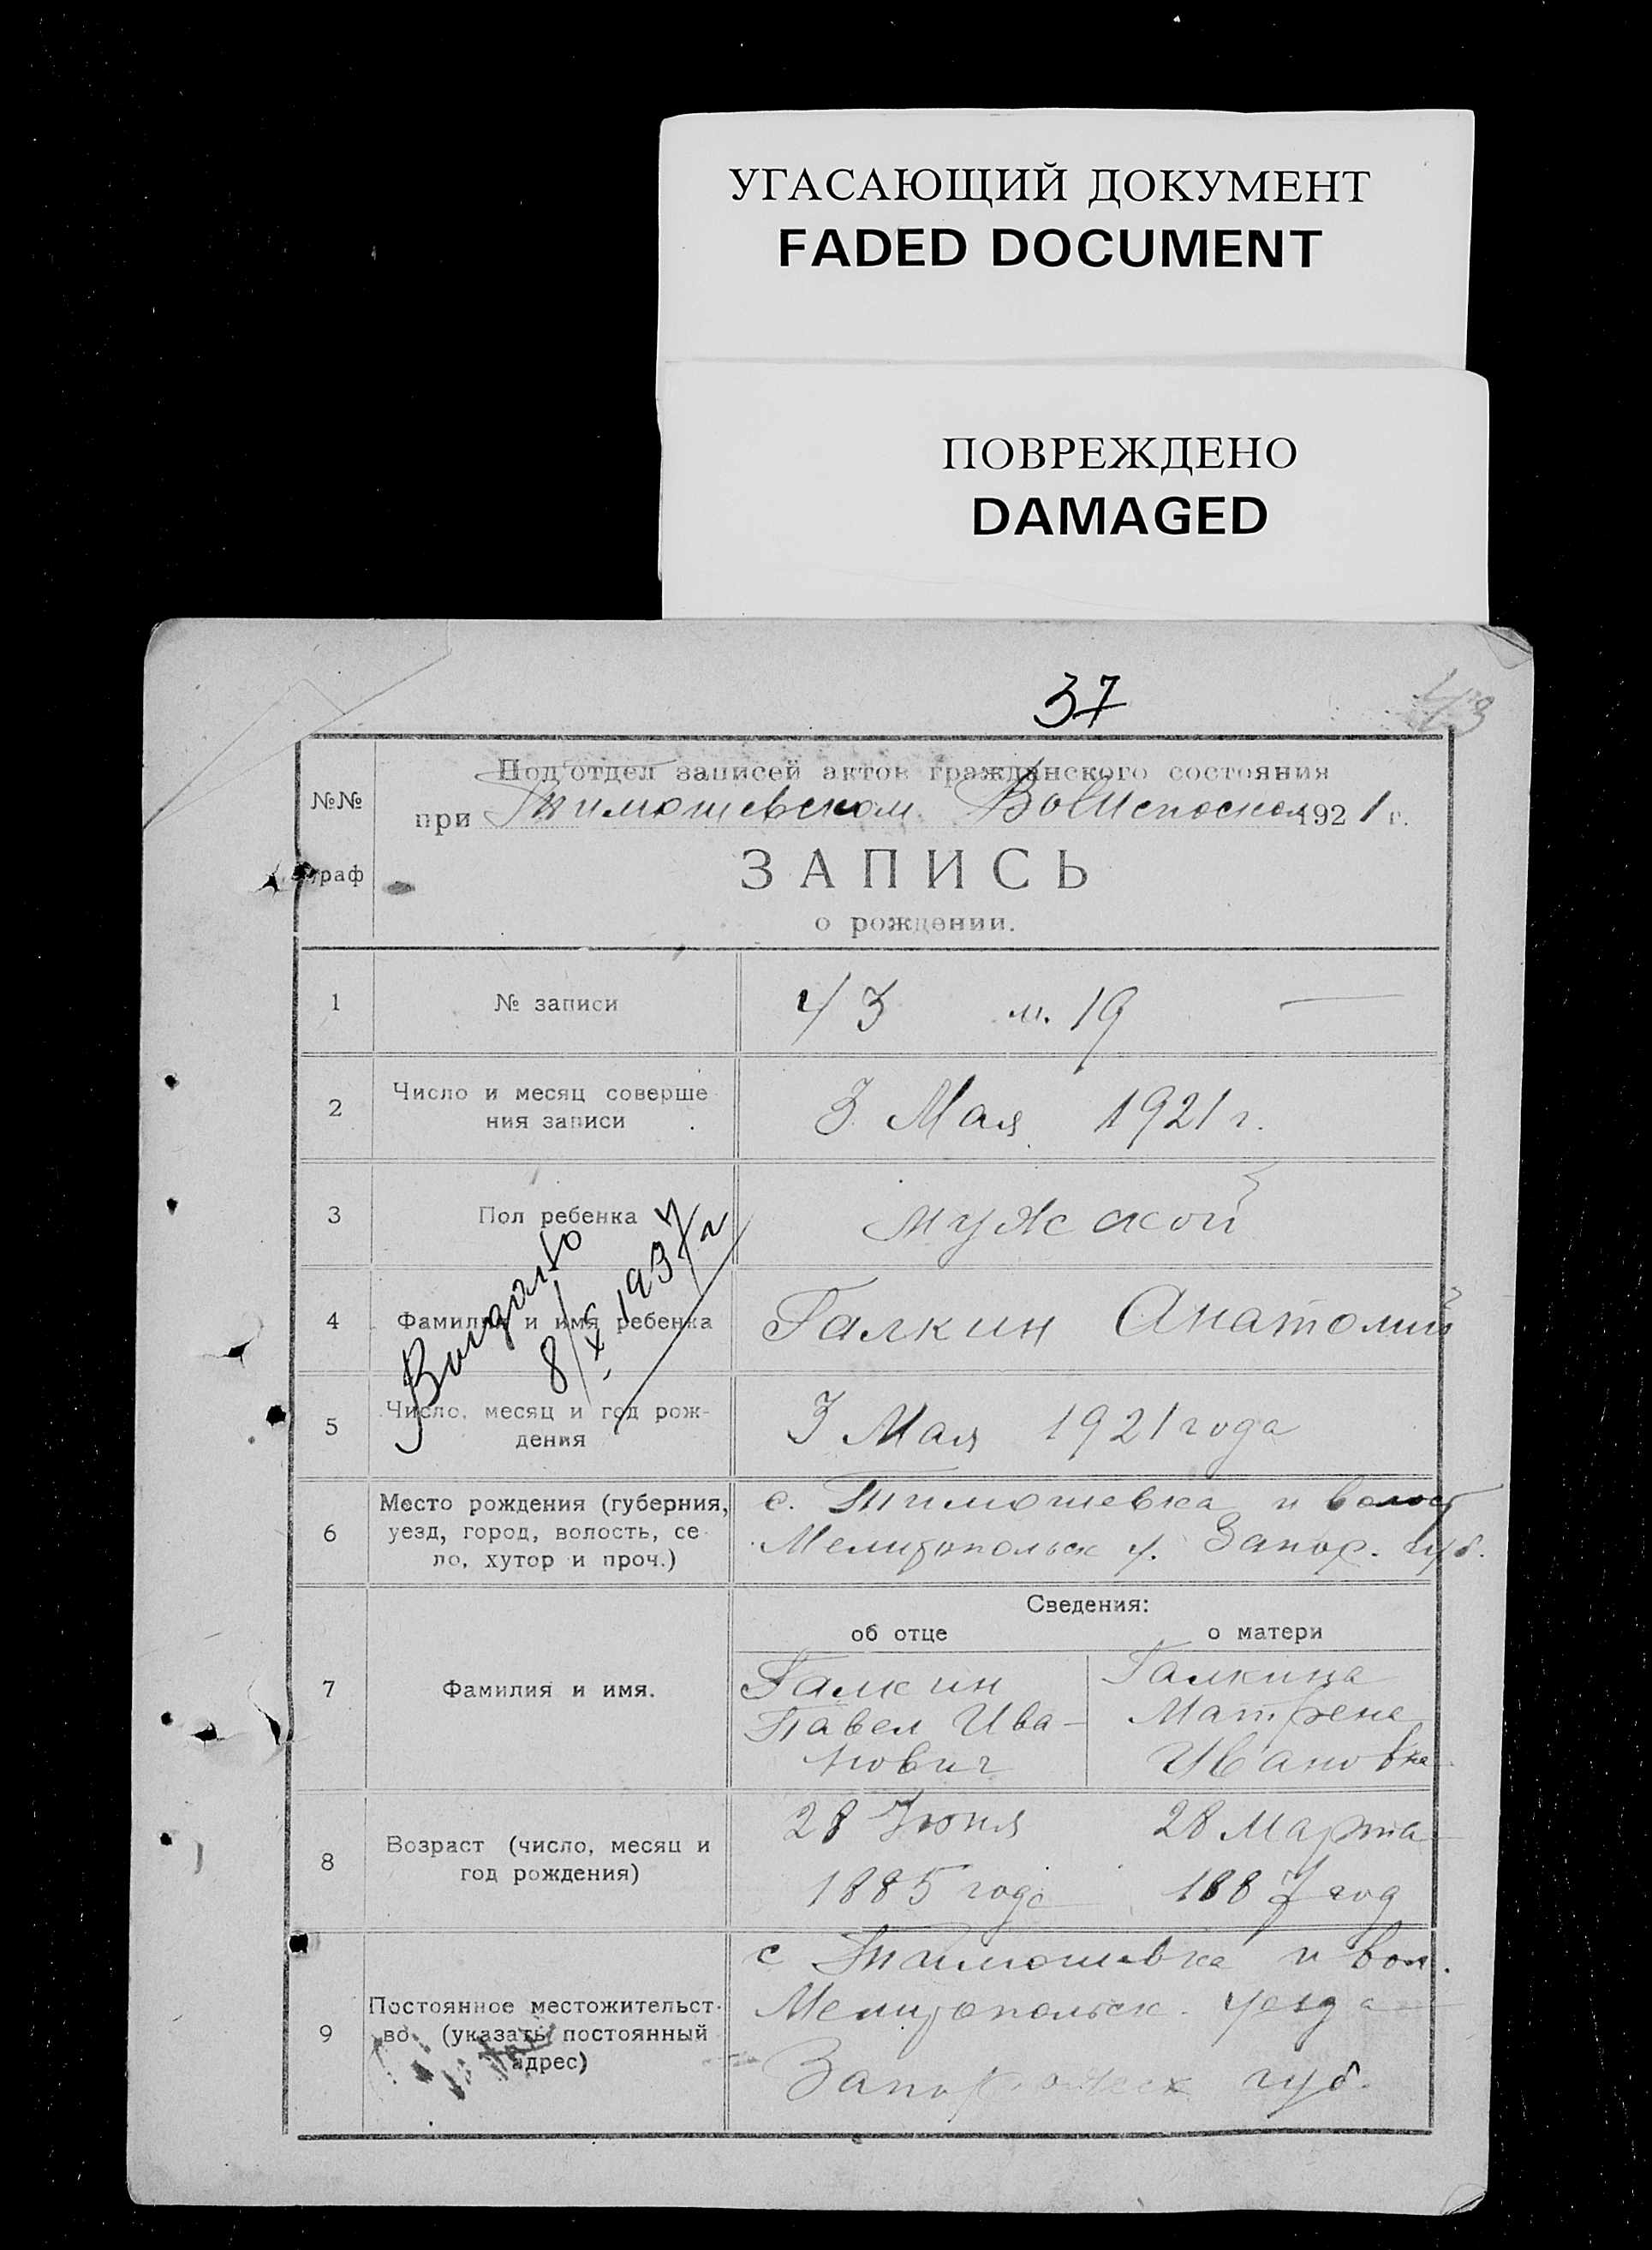 УГАСАЮЩИЙ ДОКУМЕНТ
FADED DOCUMENT
ПОВРЕЖДЕНО
DAMAGED
37
43
№№
граф
Под'отдел записей актов гражданского состояния
при Тимошевском Волисполкоме 1921 г.
ЗАПИСЬ
о рождении.
1 № записи 43 м. 19 —
2 Число и месяц соверше
ния записи
3 Мая 1921 г.
3 Пол ребенка мужской
4 Фамилия и имя ребенка Галкин Анатолий
Выдано
8/X 1937 г
5 Число, месяц и год рож-
дения
3 Мая 1921 года
6 Место рождения (губерния,
уезд, город, волость, се
ло, хутор и проч.)
с. Тимошевка и волост
Мелитопольск у. Запор. губ.
Сведения:
об отце о матери
7 Фамилия и имя.
Галкин
Павел Ива-
нович
Галкина
Матрена
Ивановна
8 Возраст (число, месяц и
год рождения)
28 Июня
1885 года
28 Марта
1887 год
9 Постоянное местожительст-
во (указать постоянный
адрес)
с Тимошевка и вол.
Мелитопольск. уезда
Запорожск губ.